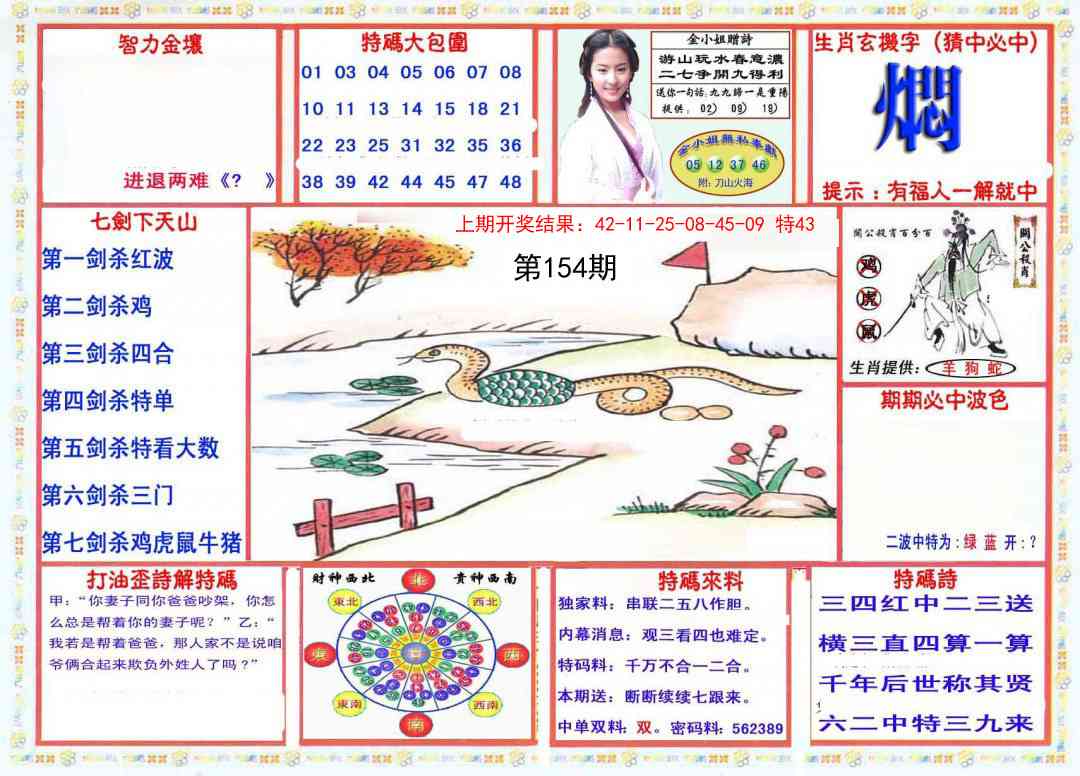 智力金壤
进退两难《? 》
特碼大包圍
01 03 04 05 06 07 08
10 11 13 14 15 18 21
22 23 25 31 32 35 36
38 39 42 44 45 47 48
金小姐贈詩
游山玩水春意濃
二七爭開九得利
送你一句話:九九歸一是重陽
提供: 02) 09) 19)
金小姐無私奉獻
05 12 37 46
附:刀山火海
生肖玄機字（猜中必中）
燜
提示：有福人一解就中
七劍下天山
第一剑杀红波
第二剑杀鸡
第三剑杀四合
第四剑杀特单
第五剑杀特看大数
第六剑杀三门
第七剑杀鸡虎鼠牛猪
上期开奖结果: 42-11-25-08-45-09 特43
第154期
關公殺肖百分百
關公殺肖
鸡
虎
鼠
生肖提供: 羊 狗 蛇
期期必中波色
二波中特为:绿 蓝 开:?
打油歪詩解特碼
甲:“你妻子同你爸爸吵架，你怎
么总是帮着你的妻子呢？”乙:“
我若是帮着爸爸，那人家不是说咱
爷俩合起来欺负外姓人了吗？”
財神西北 貴神西南
北
東北 西北
東 西
東南 西南
南
特碼來料
独家料: 串联二五八作胆。
内幕消息: 观三看四也难定。
特码料: 千万不合一二合。
本期送: 断断续续七跟来。
中单双料: 双。密码料: 562389
特碼詩
三四红中二三送
横三直四算一算
千年后世称其贤
六二中特三九来